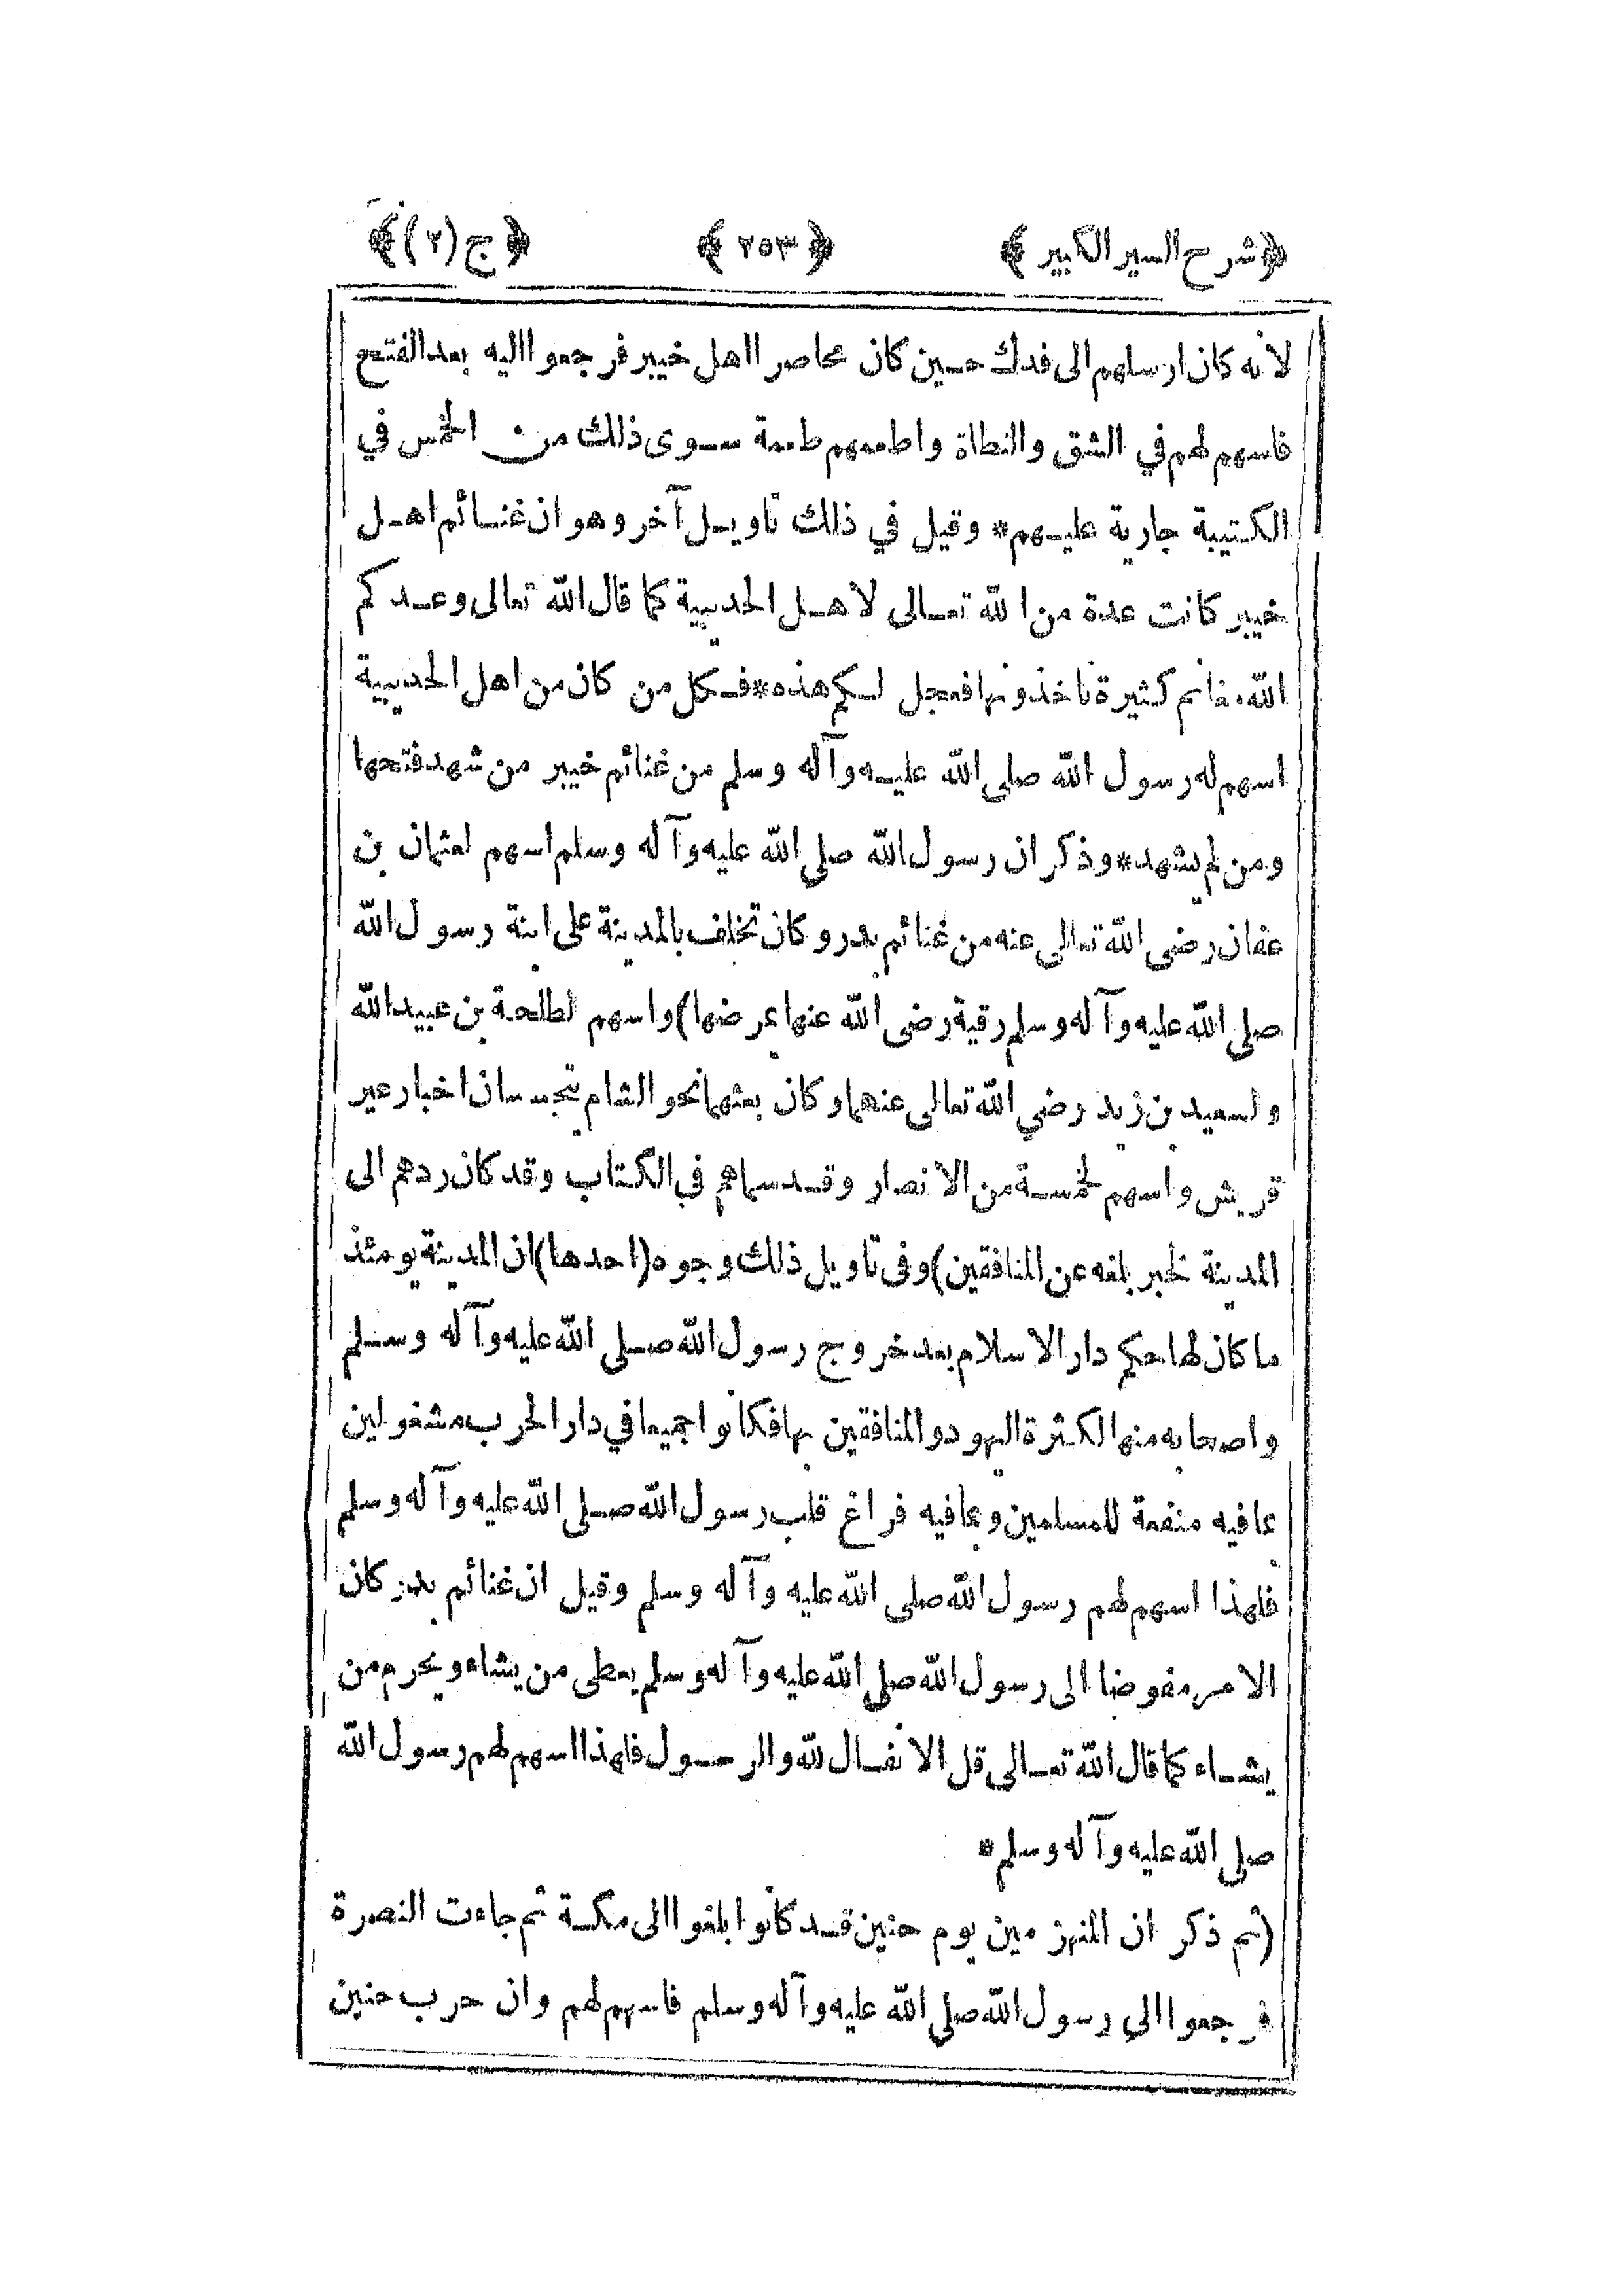 ﴿شرح السير الكبير﴾ ﴿٢٥٣﴾ ﴿ج(٢)﴾
لانه كان ارسلهم الى فدك حين كان محاصرا اهل خيبر فرجعوا اليه بعد الفتح
فاسهم لهم في الشق والنطاة واطعمهم طعمة سوى ذلك من الخمس في
الكتيبة جارية عليهم* وقيل في ذلك تاويل آخر وهو ان غنائم اهل
خيبر كانت عدة من الله تعالى لاهل الحديبية كما قال الله تعالى وعدكم
الله مغانم كثيرة تاخذونها فعجل لكم هذه* فكل من كان من اهل الحديبية
اسهم له رسول الله صلى الله عليه وآله وسلم من غنائم خيبر من شهد فتحها
ومن لم يشهد* وذكر ان رسول الله صلى الله عليه وآله وسلم اسهم لعثمان بن
عفان رضى الله تعالى عنه من غنائم بدر وكان تخلف بالمدينة على ابنة رسول الله
صلى الله عليه وآله وسلم رقية رضى الله عنها يمرضها) واسهم لطلحة بن عبيد الله
ولسعيد بن زيد رضي الله تعالى عنهما وكان بعثهما نحو الشام يتجسسان اخبار عير
قريش واسهم لخمسة من الانصار وقد سماهم في الكتاب وقد كان ردهم الى
المدينة لخبر بلغه عن المنافقين) وفى تاويل ذلك وجوه (احدها) ان المدينة يومئذ
ما كان لها حكم دار الاسلام بعد خروج رسول الله صلى الله عليه وآله وسلم
واصحابه منها لكثرة اليهود والمنافقين بها فكانوا جميعا في دار الحرب مشغولين
بما فيه منفعة للمسلمين وبما فيه فراغ قلب رسول الله صلى الله عليه وآله وسلم
فلهذا اسهم لهم رسول الله صلى الله عليه وآله وسلم وقيل ان غنائم بدر كان
الامر مفوضا الى رسول الله صلى الله عليه وآله وسلم يعطى من يشاء ويحرم من
يشاء كما قال الله تعالى قل الانفال لله والرسول فلهذا اسهم لهم رسول الله
صلى الله عليه وآله وسلم*
(ثم ذكر ان المنهزمين يوم حنين قد كانوا بلغوا الى مكة ثم جاءت النصرة
فرجعوا الى رسول الله صلى الله عليه وآله وسلم فاسهم لهم وان حرب حنين